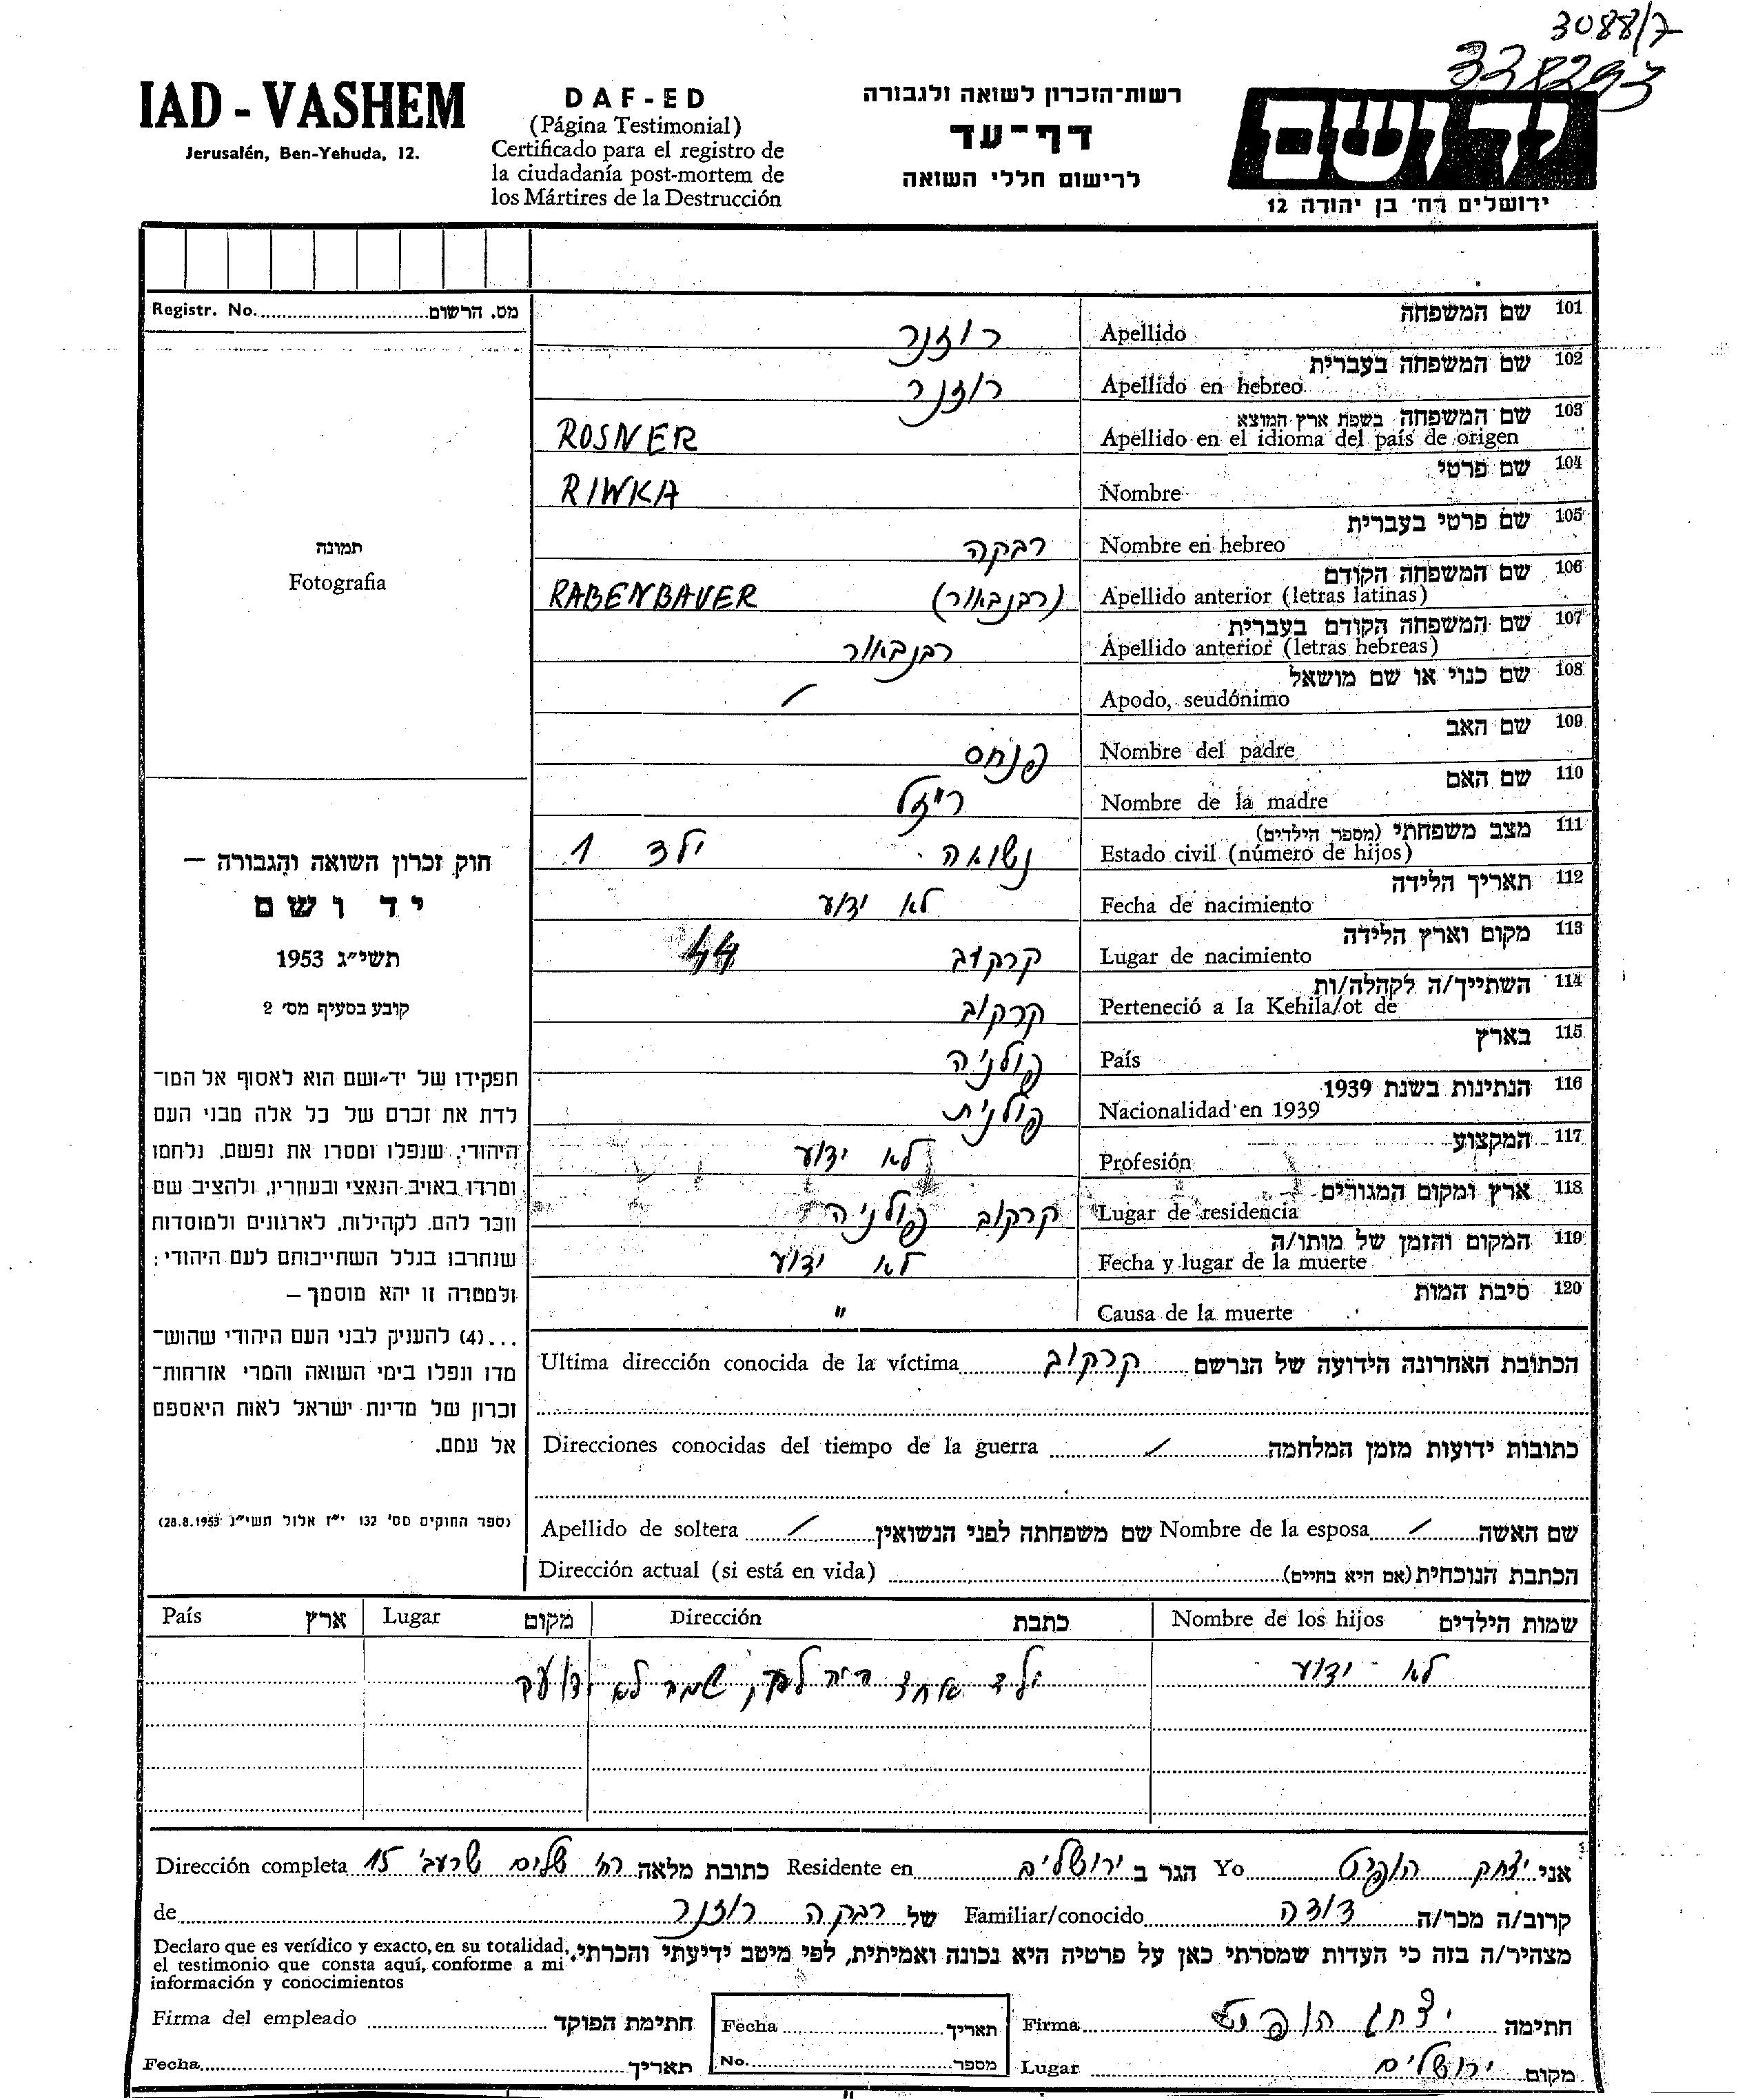 3088/7
338293
IAD - VASHEM
Jerusalén, Ben-Yehuda, 12.
DAF-ED
(Página Testimonial)
Certificado para el registro de
la ciudadanía post-mortem de
los Mártires de la Destrucción
רשות־הזכרון לשואה ולגבורה
דף־עד
לרישום חללי השואה
ידושם
ירושלים רח' בן יהודה 12
Registr. No. מס. הרשום
תמונה
Fotografia
חוק זכרון השואה והגבורה –
יד ושם
תשי״ג 1953
קובע בסעיף מס׳ 2
תפקידו של יד־ושם הוא לאסוף אל המו־
לדת את זכרם של כל אלה מבני העם
היהודי, שנפלו ומסרו את נפשם, נלחמו
ומרדו באויב הנאצי ובעוזריו, ולהציב שם
וזכר להם, לקהילות, לארגונים ולמוסדות
שנחרבו בגלל השתייכותם לעם היהודי;
ולמטרה זו יהא מוסמך –
...(4) להעניק לבני העם היהודי שהוש־
מדו ונפלו בימי השואה והמרי אזרחות־
זכרון של מדינת ישראל לאות היאספם
אל עמם.
(ספר החוקים מס' 132 י״ז אלול תשי״ג 28.8.1953)
101 שם המשפחה
Apellido רוזנר
102 שם המשפחה בעברית
Apellido en hebreo רוזנר
103 שם המשפחה בשפת ארץ המוצא
Apellido en el idioma del país de origen ROSNER
104 שם פרטי
Nombre RIWKA
105 שם פרטי בעברית
Nombre en hebreo רבקה
106 שם המשפחה הקודם
Apellido anterior (letras latinas) (רבנבאור) RABENBAUER
107 שם המשפחה הקודם בעברית
Apellido anterior (letras hebreas) רבנבאור
108 שם כנוי או שם מושאל
Apodo, seudónimo /
109 שם האב
Nombre del padre פנחס
110 שם האם
Nombre de la madre רייזל
111 מצב משפחתי (מספר הילדים)
Estado civil (número de hijos) נשואה ילד 1
112 תאריך הלידה
Fecha de nacimiento לא ידוע
113 מקום וארץ הלידה
Lugar de nacimiento קרקוב 44
114 השתייך/ה לקהלה/ות
Perteneció a la Kehila/ot de קרקוב
115 בארץ
País פולניה
116 הנתינות בשנת 1939
Nacionalidad en 1939 פולנית
117 המקצוע
Profesión לא ידוע
118 ארץ ומקום המגורים
Lugar de residencia קרקוב פולניה
119 המקום והזמן של מותו/ה
Fecha y lugar de la muerte לא ידוע
120 סיבת המות
Causa de la muerte "
Ultima dirección conocida de la víctima קרקוב הכתובת האחרונה הידועה של הנרשם
Direcciones conocidas del tiempo de la guerra / כתובות ידועות מזמן המלחמה
Apellido de soltera / שם משפחתה לפני הנשואין Nombre de la esposa / שם האשה
Dirección actual (si está en vida) הכתבת הנוכחית (אם היא בחיים)
País ארץ Lugar מקום Dirección כתבת Nombre de los hijos שמות הילדים
לא ידוע
ילד אחד היה להן, שמה לא ידוע
אני יצחק הופרט Yo הגר ב ירושלים Residente en כתובת מלאה רח' שלום שרעבי 15 Dirección completa
קרוב/ה מכר/ה דודה Familiar/conocido של רבקה רוזנר de
מצהיר/ה בזה כי העדות שמסרתי כאן על פרטיה היא נכונה ואמיתית, לפי מיטב ידיעתי והכרתי.
Declaro que es verídico y exacto, en su totalidad,
el testimonio que consta aquí, conforme a mi
información y conocimientos
Firma del empleado חתימת הפוקד Fecha תאריך Firma יצחק הופרט חתימה
Fecha תאריך No. מספר Lugar ירושלים מקום